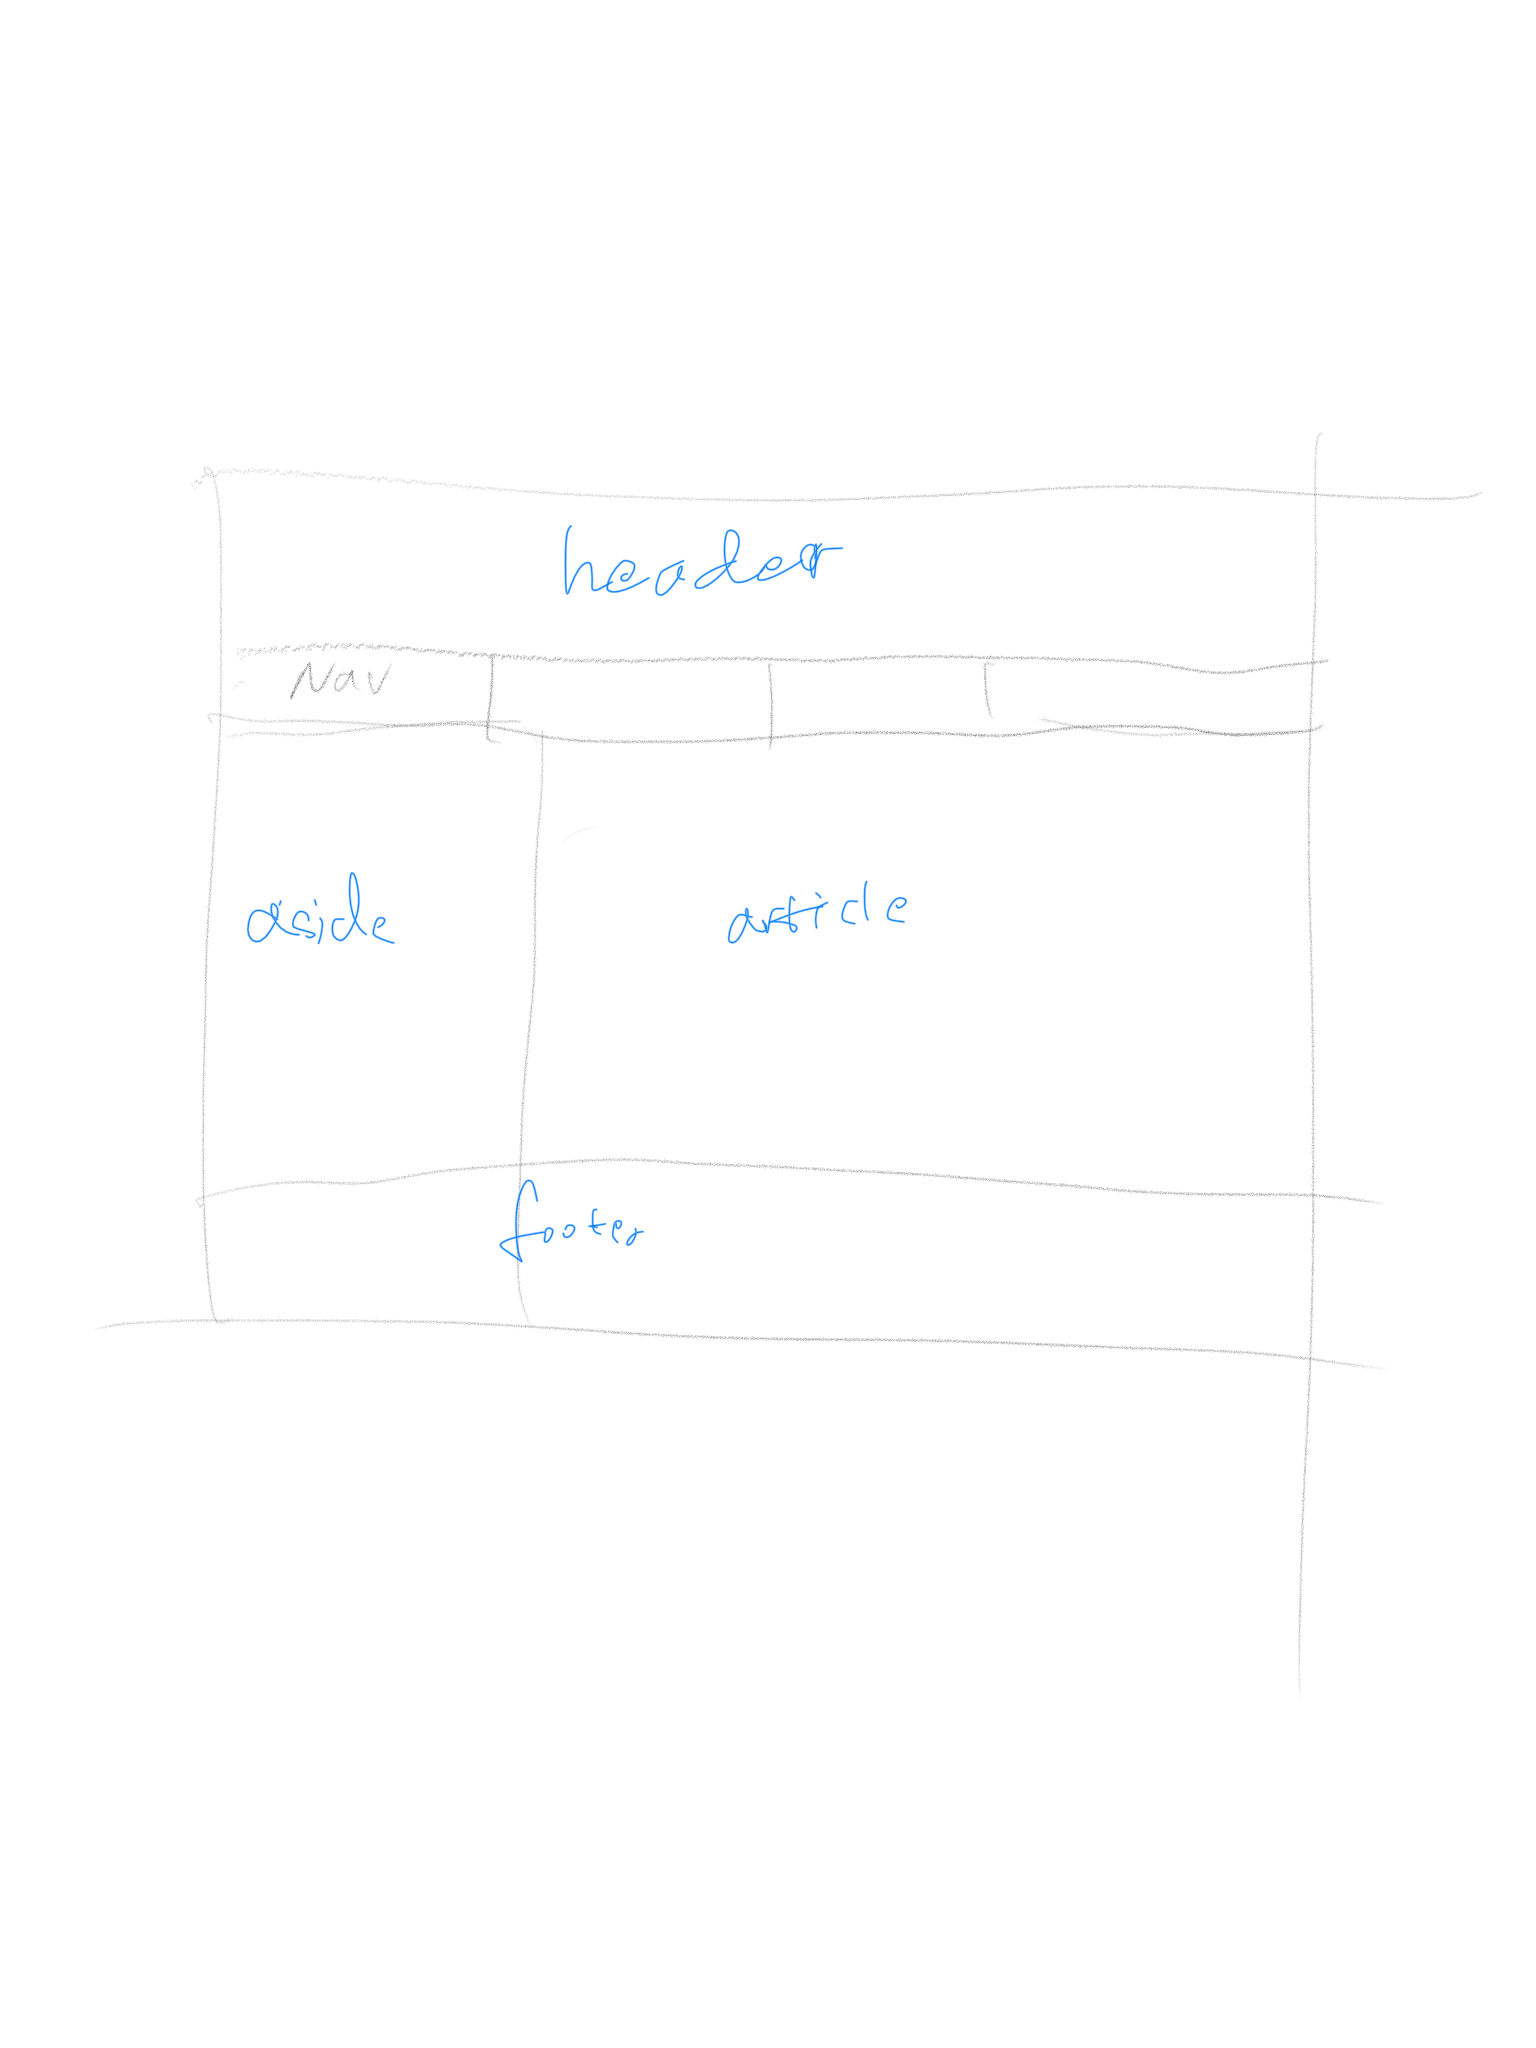 header
Nav
aside
article
footer